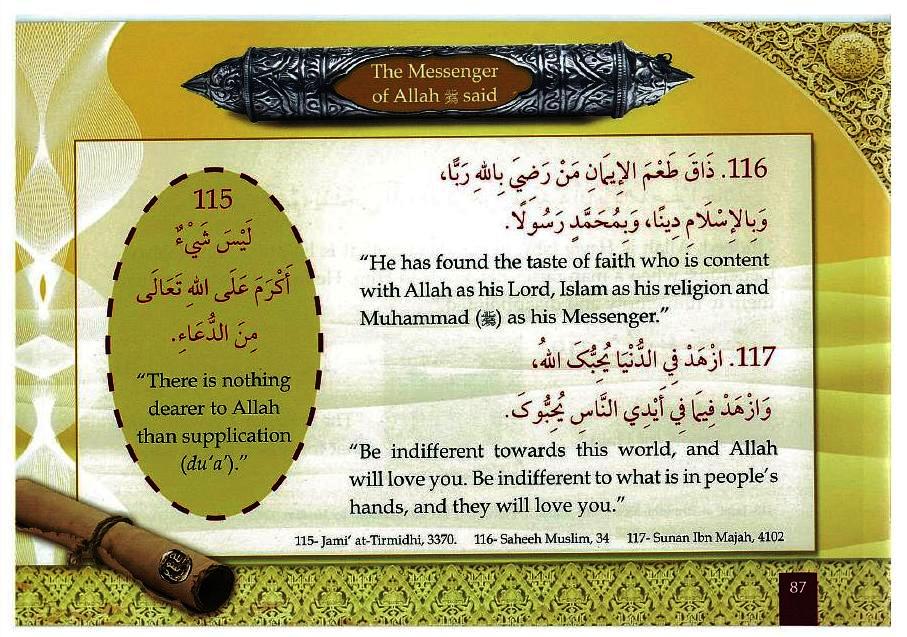 The Messenger
of Allah ﷺ said
115
لَيْسَ شَيْءٌ
أَكْرَمَ عَلَى اللهِ تَعَالَى
مِنَ الدُّعَاءِ.
“There is nothing
dearer to Allah
than supplication
(du‘a’).”
116. ذَاقَ طَعْمَ الإِيمَانِ مَنْ رَضِيَ بِاللهِ رَبًّا،
وَبِالإِسْلَامِ دِينًا، وَبِمُحَمَّدٍ رَسُولًا.
“He has found the taste of faith who is content
with Allah as his Lord, Islam as his religion and
Muhammad (ﷺ) as his Messenger.”
117. ازْهَدْ فِي الدُّنْيَا يُحِبُّكَ اللهُ،
وَازْهَدْ فِيمَا فِي أَيْدِي النَّاسِ يُحِبُّوكَ.
“Be indifferent towards this world, and Allah
will love you. Be indifferent to what is in people’s
hands, and they will love you.”
115- Jami‘ at-Tirmidhi, 3370. 116- Saheeh Muslim, 34 117- Sunan Ibn Majah, 4102
87